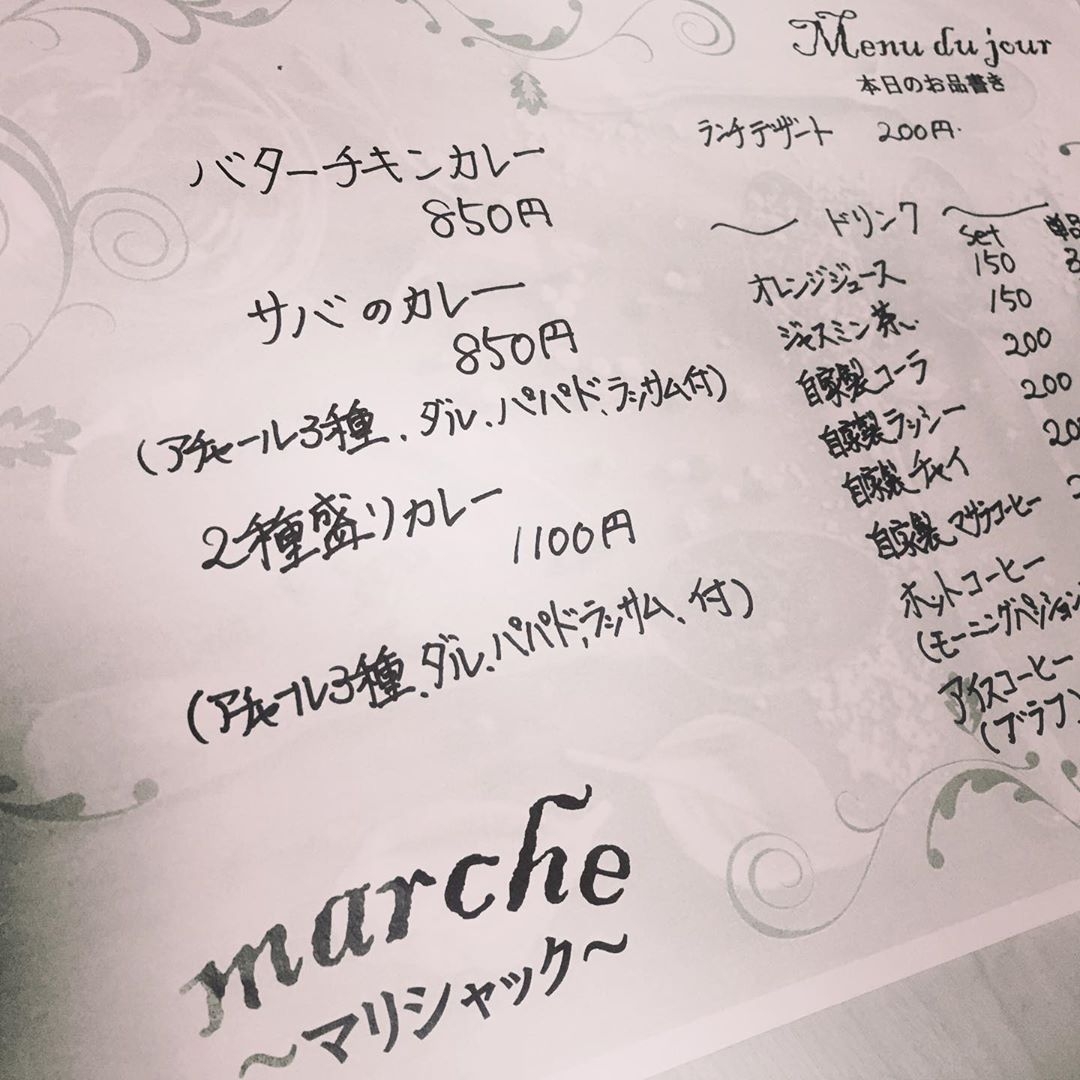 バターチキンカレー
850円
サバのカレー
850円
(アチャール3種、ダル、パパド、ラッサム付)
2種盛りカレー
1100円
(アチャール3種、ダル、パパド、ラッサム、付)
marche
～マリシャック～
Menu du jour
本日のお品書き
ランチデザート 200円.
～ ドリンク ～
set 単品
オレンジジュース 150
ジャスミン茶 150
自家製コーラ 200
自家製ラッシー 200
自家製チャイ
自家製マサラコーヒー
ホットコーヒー
(モーニングパッション
アイスコーヒー